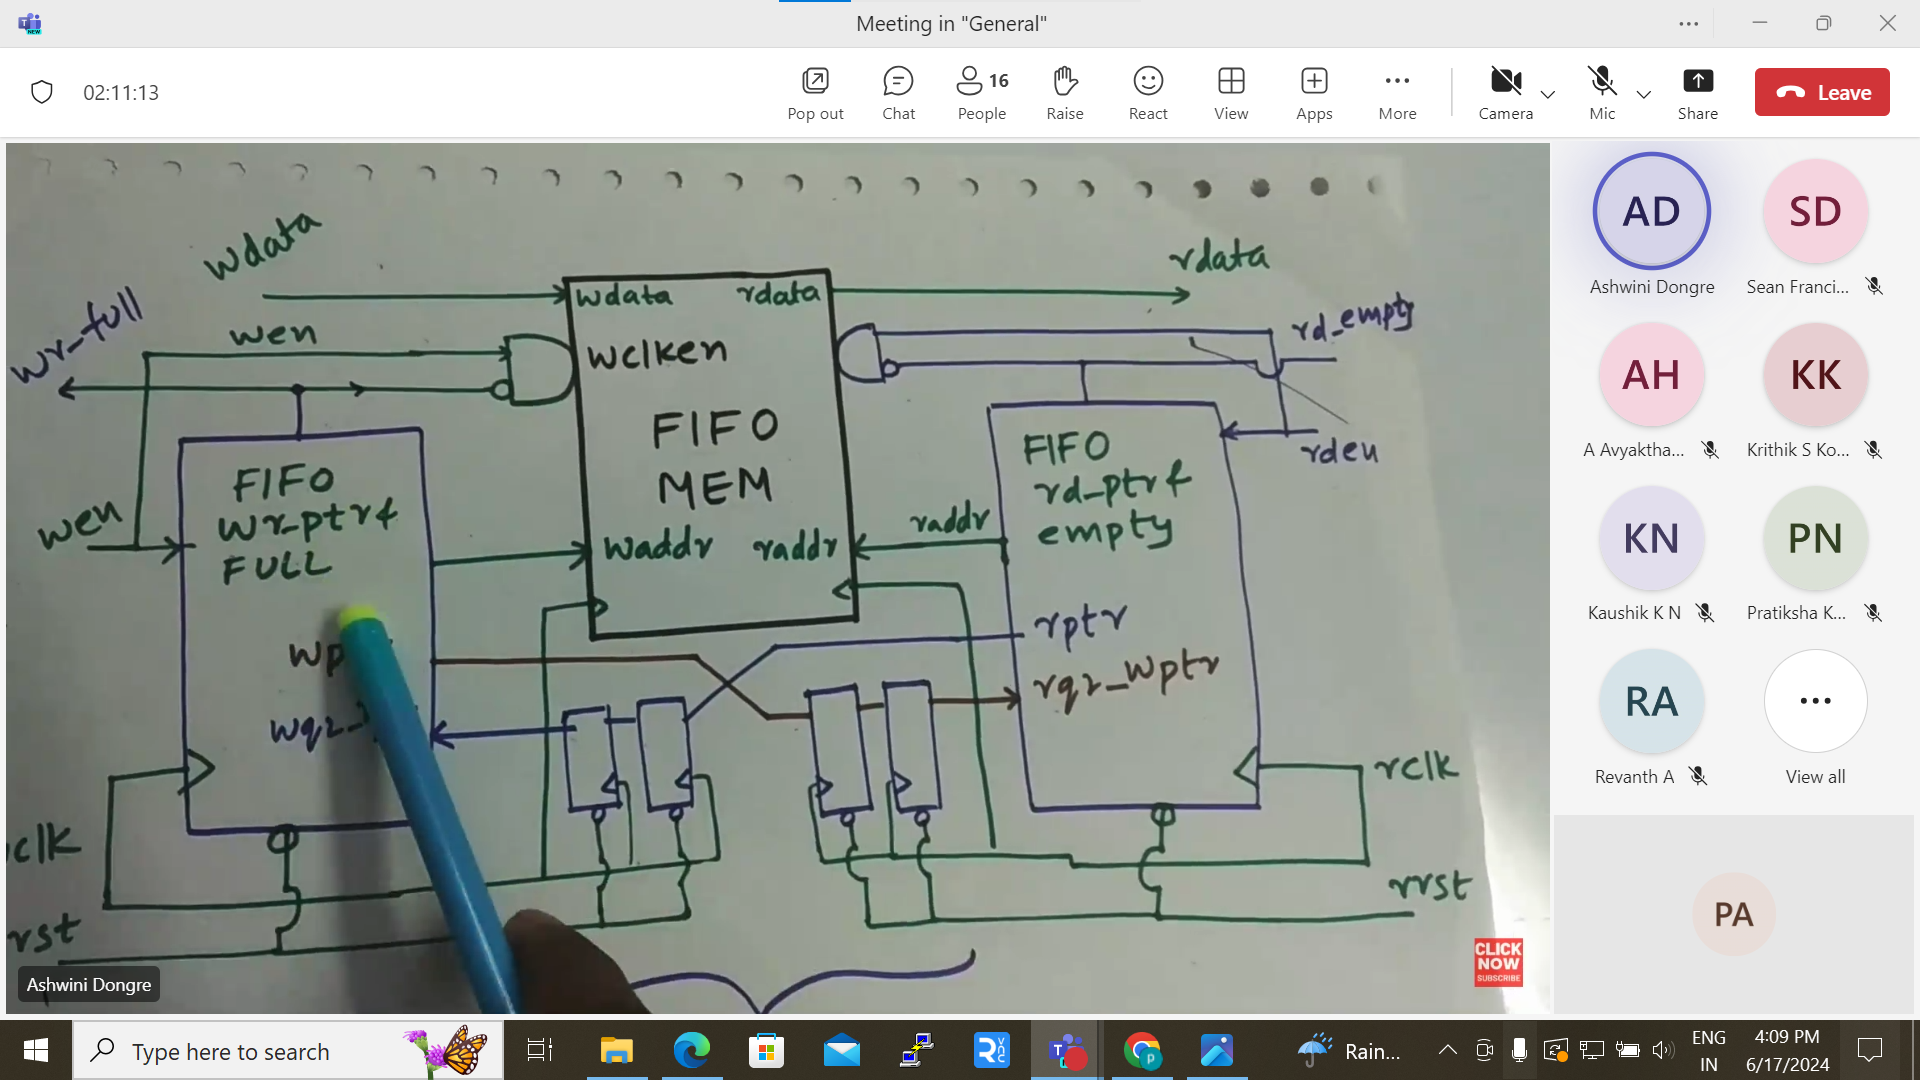 Meeting in "General"
02:11:13
Pop out
Chat
16
People
Raise
React
View
Apps
More
Camera
Mic
Share
Leave
wdata
rdata
wr_full
wen
wdata
rdata
rd_empty
wclken
FIFO
MEM
FIFO
wr_ptr &
FULL
FIFO
rd_ptr &
empty
rden
wen
waddr
raddr
raddr
rptr
rq2_wptr
rclk
clk
rrst
rst
CLICK
NOW
SUBSCRIBE
Ashwini Dongre
AD
Ashwini Dongre
SD
Sean Franci...
AH
A Avyaktha...
KK
Krithik S Ko...
KN
Kaushik K N
PN
Pratiksha K...
RA
Revanth A
View all
PA
Type here to search
Rain...
ENG
IN
4:09 PM
6/17/2024